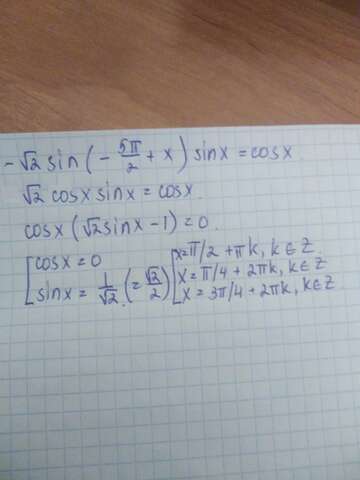 -√2 sin(-5π/2 + x) sinx = cosx
√2 cosx sinx = cosx.
cosx (√2 sinx - 1) = 0.
[cosx = 0
sinx = 1/√2 (= √2/2)
[x = π/2 + πk, k ∈ Z
x = π/4 + 2πk, k ∈ Z
x = 3π/4 + 2πk, k ∈ Z